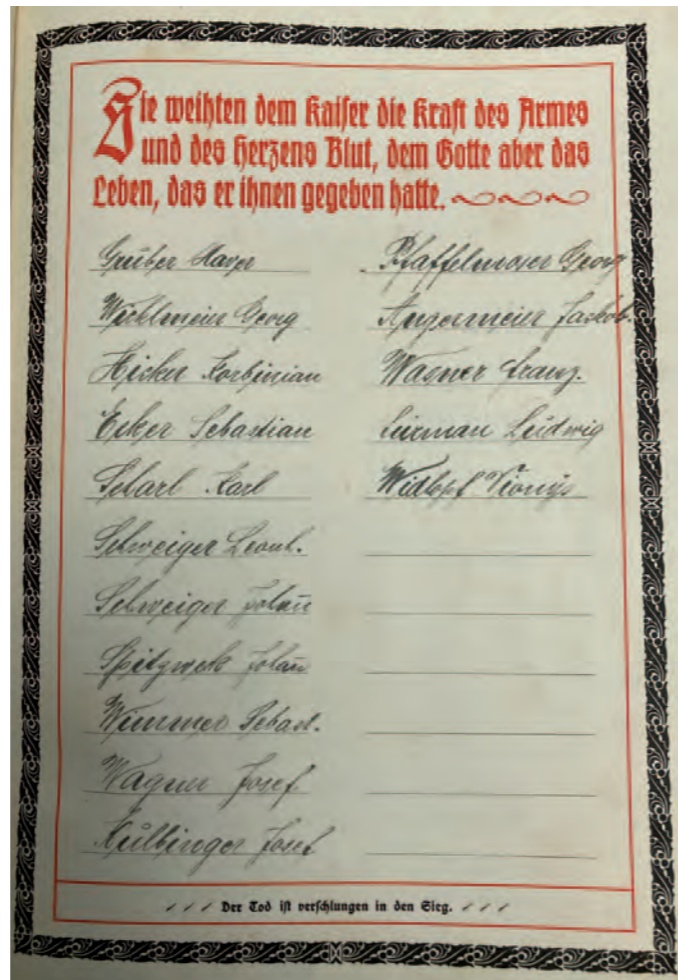 Sie weihten dem Kaiser die Kraft des Armes
und des Herzens Blut, dem Gotte aber das
Leben, das er ihnen gegeben hatte.
Gruber Xaver
Wichlmeier Georg
Hicker Korbinian
Ecker Sebastian
Scharl Karl
Schweiger Leonh.
Schweiger Johann
Spitzweck Johann
Wimmer Sebast.
Wagner Josef
Aulbinger Josef
Pfaffelmoser Georg
Angermeier Jackob.
Wagner Franz.
Ludwig
Der Tod ist verschlungen in den Sieg.